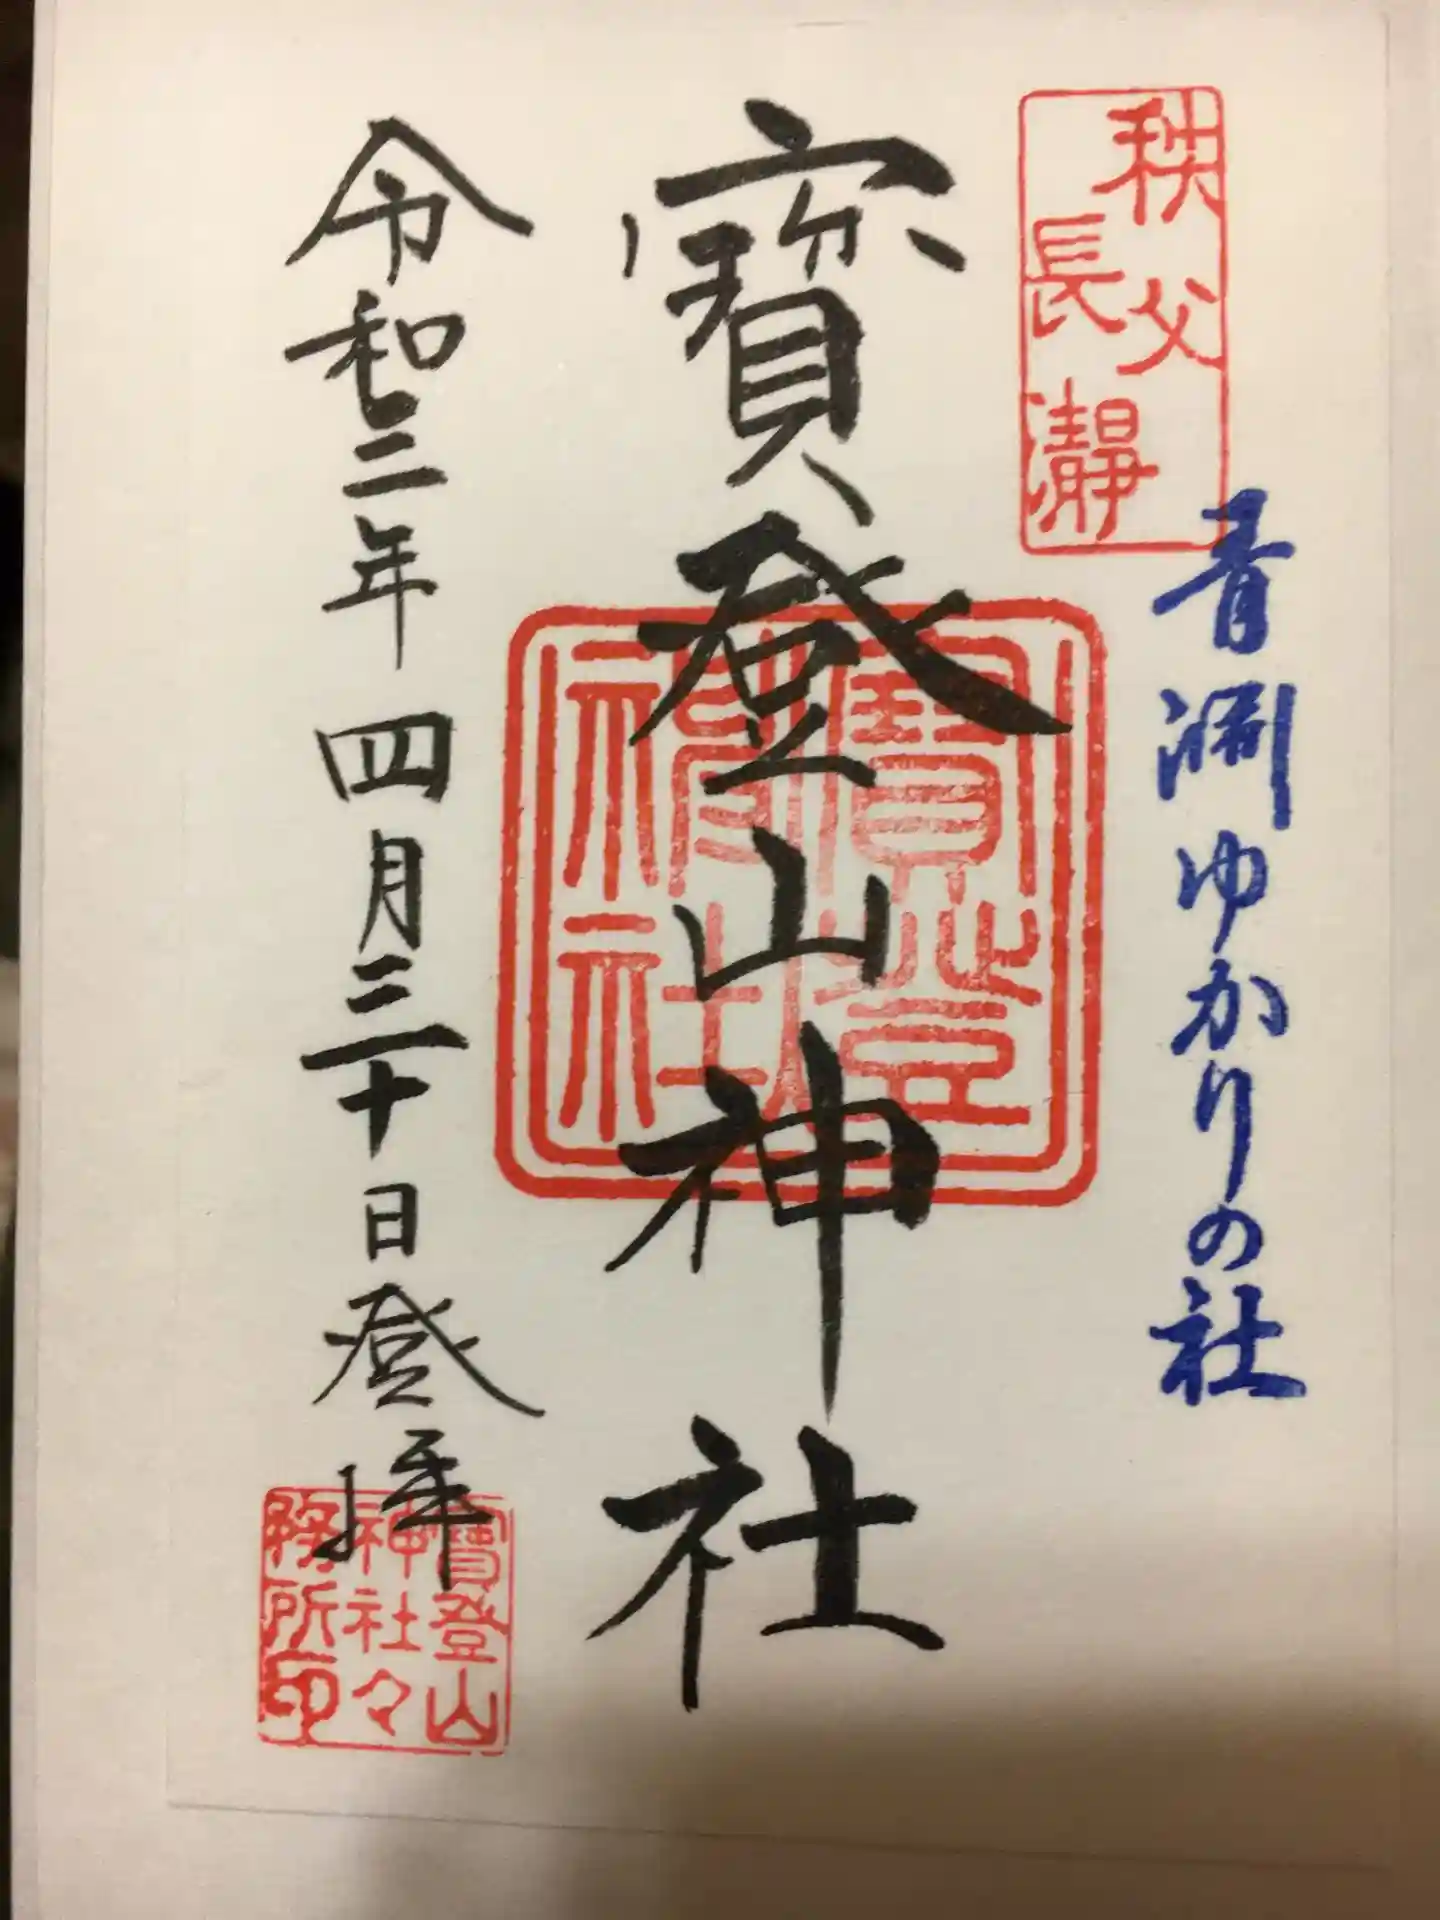 秩父
長瀞
青淵ゆかりの社
寳登山神社
寳登
神社
令和二年四月三十日登拝
寳登山
神社々
務所印